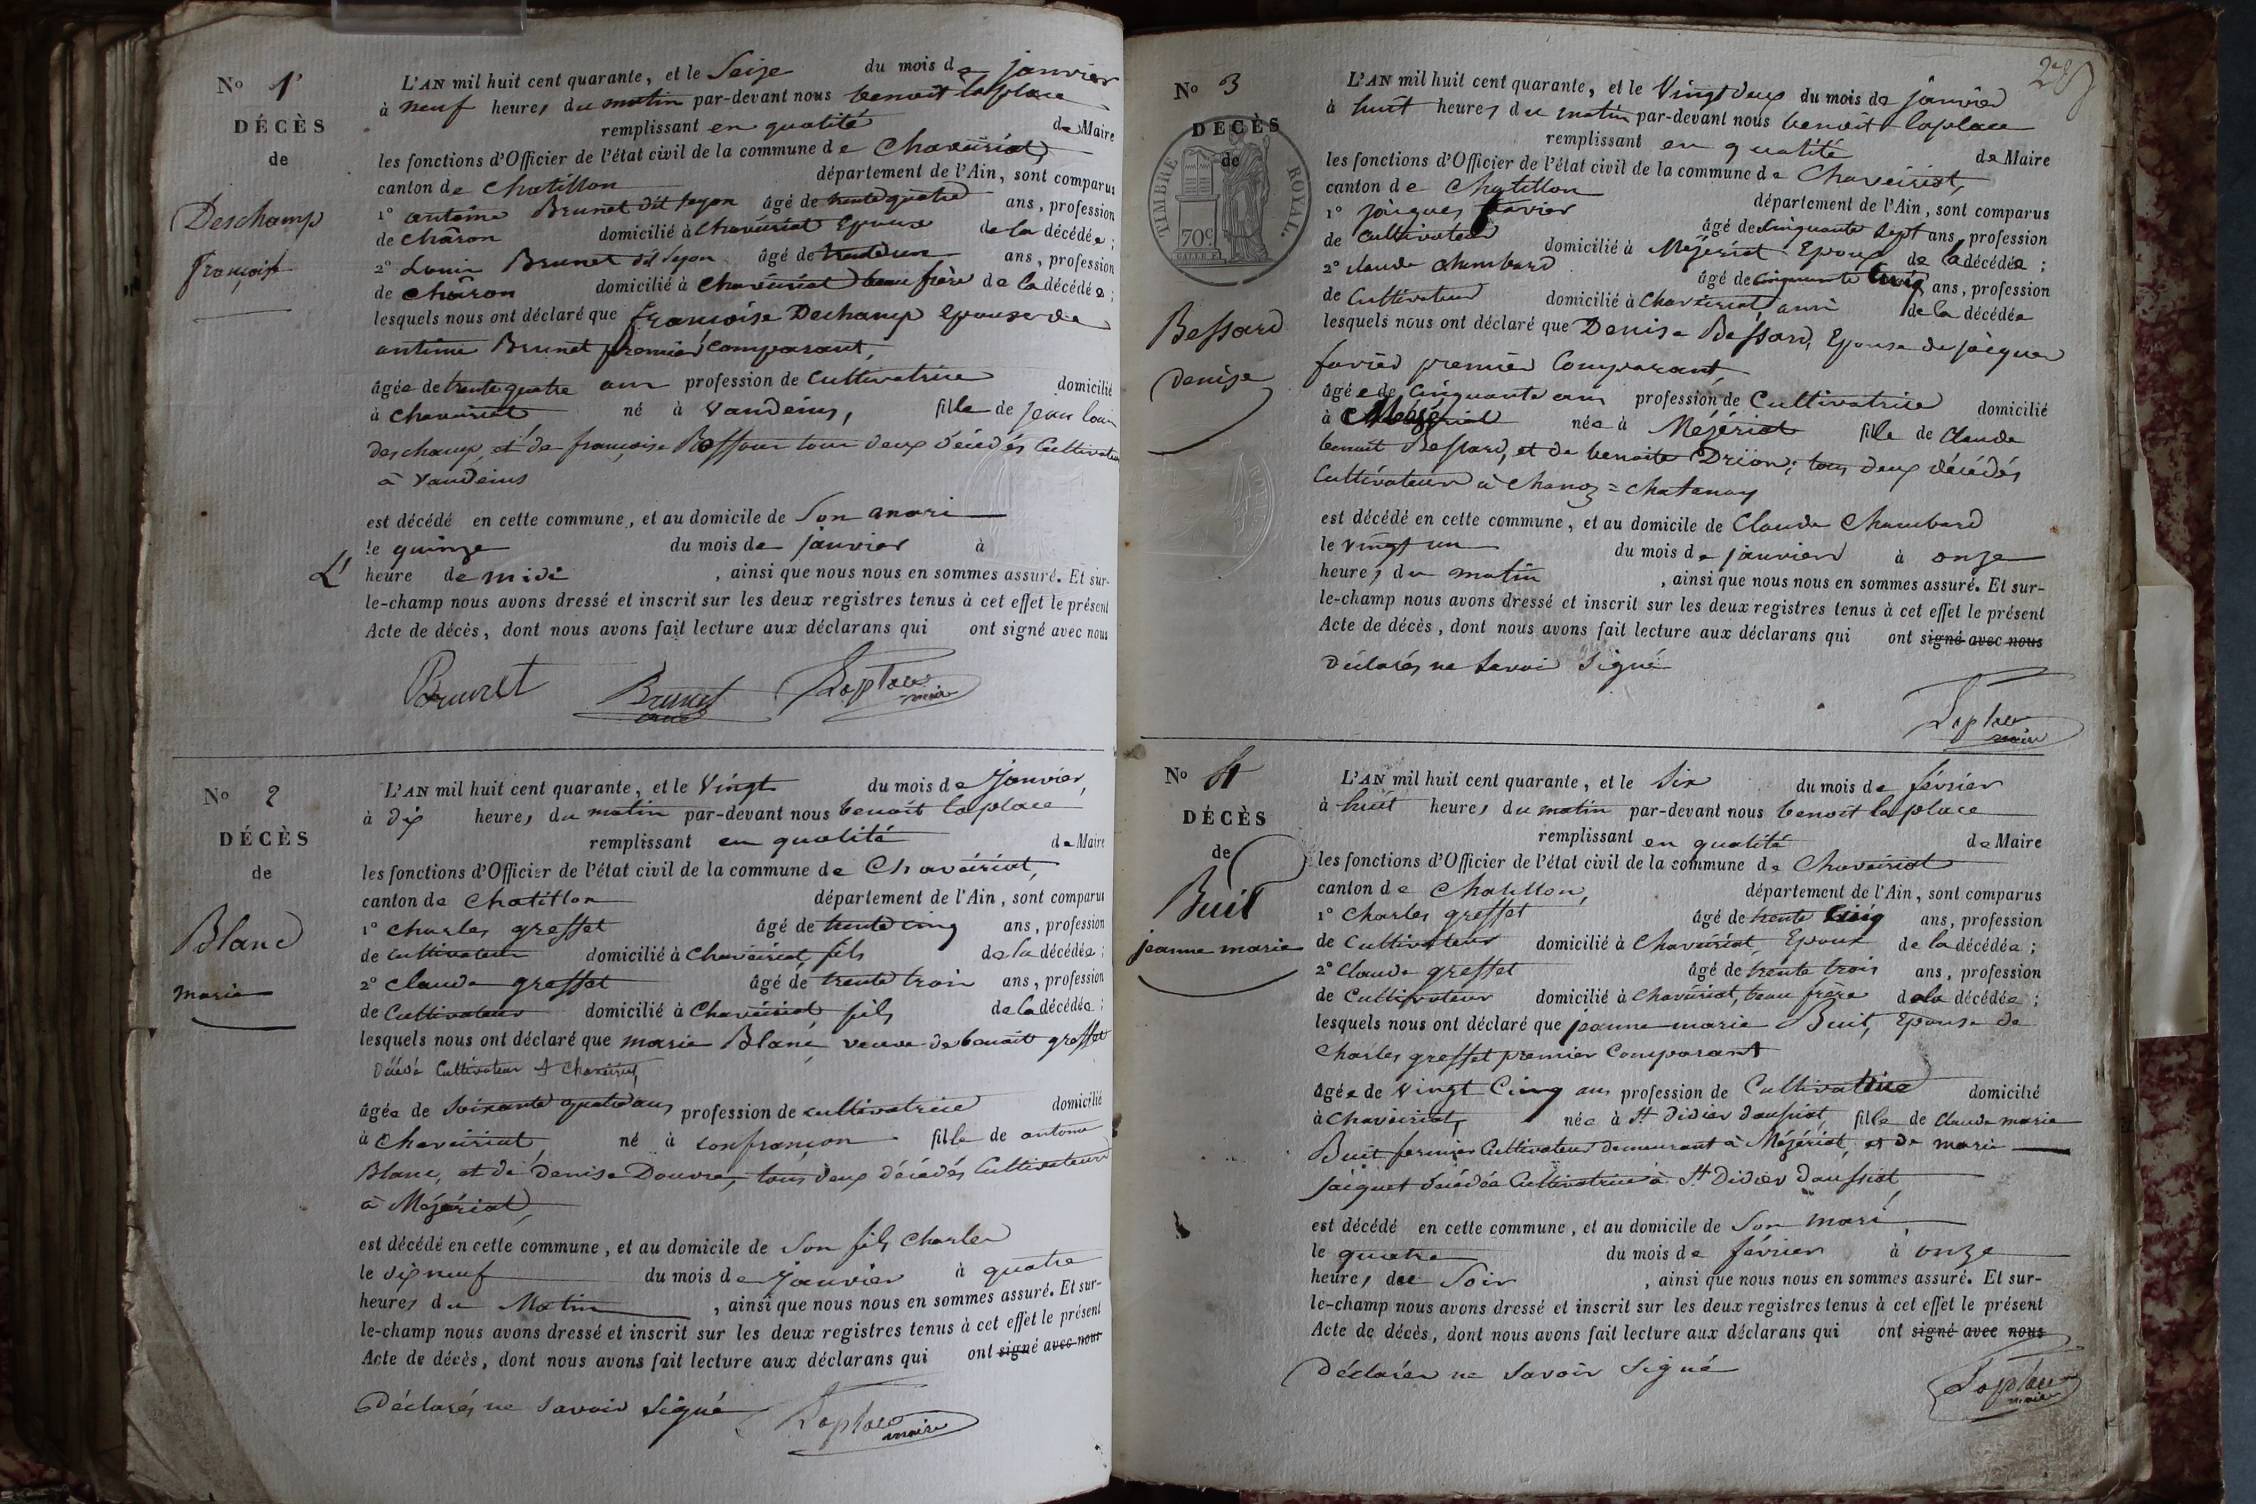 No 1
DÉCÈS
de
Deschamp
françoise
L'AN mil huit cent quarante, et le Seize du mois de janvier
à neuf heures du matin par-devant nous benoit laplace
remplissant en qualité de Maire
les fonctions d'Officier de l'état civil de la commune de Chaveiriat,
canton de Chatillon département de l'Ain, sont comparus
1° antoine Brunet dit luyon âgé de trente quatre ans, profession
de châron domicilié à chaveiriat Epoux de la décédée;
2° Louis Brunet dit luyon âgé de trente un ans, profession
de châron domicilié à chaveiriat beau frère de la décédée;
lesquels nous ont déclaré que françoise Dechamp Epouse de
antoine Brunet premier comparant,
âgée de trente quatre ans profession de Cultivatrice domicilié
à chaveiriat né à Vandeins, fille de jean louis
deschamp, et de françoise tous deux décédés Cultivateurs
à Vandeins
est décédé en cette commune, et au domicile de Son mari
le quinze du mois de janvier à
L' heure de midi, ainsi que nous nous en sommes assuré. Et sur-
le-champ nous avons dressé et inscrit sur les deux registres tenus à cet effet le présent
Acte de décès, dont nous avons fait lecture aux déclarans qui ont signé avec nous
Brunet Brunet Laplace maire
No 2
DÉCÈS
de
Blanc
marie
L'AN mil huit cent quarante, et le Vingt du mois de Janvier,
à dix heures du matin par-devant nous benoit laplace
remplissant en qualité de Maire
les fonctions d'Officier de l'état civil de la commune de Chavéiriat,
canton de Chatillon département de l'Ain, sont comparus
1° charles greffet âgé de trente cinq ans, profession
de cultivateur domicilié à Chavéiriat, fils de la décédée;
2° claude greffet âgé de trente trois ans, profession
de Cultivateur domicilié à Chavéiriat fils de la décédée;
lesquels nous ont déclaré que marie Blanc veuve de benoit greffet
Décédé Cultivateur à Chavéiriat,
âgée de Soixante quatre ans profession de cultivatrice domicilié
à Chaveiriat, né à confrançon fille de antoine
Blanc, et de Denise Douvre, tous deux décédés Cultivateurs
à Mézériat,
est décédé en cette commune, et au domicile de Son fils Charles
le dix neuf du mois de Janvier à quatre
heures du Matin, ainsi que nous nous en sommes assuré. Et sur-
le-champ nous avons dressé et inscrit sur les deux registres tenus à cet effet le présent
Acte de décès, dont nous avons fait lecture aux déclarans qui ont signé avec nous
Déclarés ne Savoir Signé Laplace maire
No 3
DÉCÈS
de
TIMBRE ROYAL.
70c
Bessard
denise
L'AN mil huit cent quarante, et le Vingt deux du mois de janvier
à huit heures du matin par-devant nous benoit laplace
remplissant en qualité de Maire
les fonctions d'Officier de l'état civil de la commune de Chaveiriat,
canton de Chatillon département de l'Ain, sont comparus
1° jâcques favier âgé de Cinquante Sept ans, profession
de Cultivateur domicilié à Mézériat Epoux de la décédée;
2° claude chambard âgé de Cinquante Cinq ans, profession
de Cultivateur domicilié à Chaveiriat, ami de la décédée
lesquels nous ont déclaré que Denise Bessard, Epouse de jâcques
favier premier Comparant,
âgée de Cinquante ans profession de Cultivatrice domicilié
à Mézériat née à Mézériat fille de Claude
benoit Bessard, et de benoite Drion, tous deux décédés
Cultivateurs à Chanoz=Chatenay
est décédé en cette commune, et au domicile de Claude Chambard
le Vingt un du mois de janvier à onze
heures du matin, ainsi que nous nous en sommes assuré. Et sur-
le-champ nous avons dressé et inscrit sur les deux registres tenus à cet effet le présent
Acte de décès, dont nous avons fait lecture aux déclarans qui ont signé avec nous
Déclarés ne Savoir Signé
Laplace maire
No 4
DÉCÈS
de
Buit
jeanne marie
L'AN mil huit cent quarante, et le Six du mois de février
à huit heures du matin par-devant nous benoit laplace
remplissant en qualité de Maire
les fonctions d'Officier de l'état civil de la commune de Chaveiriat
canton de Chatillon, département de l'Ain, sont comparus
1° Charles greffet âgé de trente Cinq ans, profession
de Cultivateur domicilié à Chaveiriat, Epoux de la décédée;
2° Claude greffet âgé de trente trois ans, profession
de Cultivateur domicilié à Chaveiriat, beau frère de la décédée;
lesquels nous ont déclaré que jeanne marie Buit, Epouse de
Charles greffet premier Comparant
âgée de Vingt Cinq ans profession de Cultivatrice domicilié
à Chaveiriat, née à St didier daussiat, fille de Claude marie
Buit fermier Cultivateur demeurant à Mézériat, et de marie
jâiquet décédée Cultivatrice à St Didier Daussiat,
est décédé en cette commune, et au domicile de Son mari,
le quatre du mois de février à onze
heures du Soir, ainsi que nous nous en sommes assuré. Et sur-
le-champ nous avons dressé et inscrit sur les deux registres tenus à cet effet le présent
Acte de décès, dont nous avons fait lecture aux déclarans qui ont signé avec nous
Déclarés ne Savoir Signé
Laplace maire